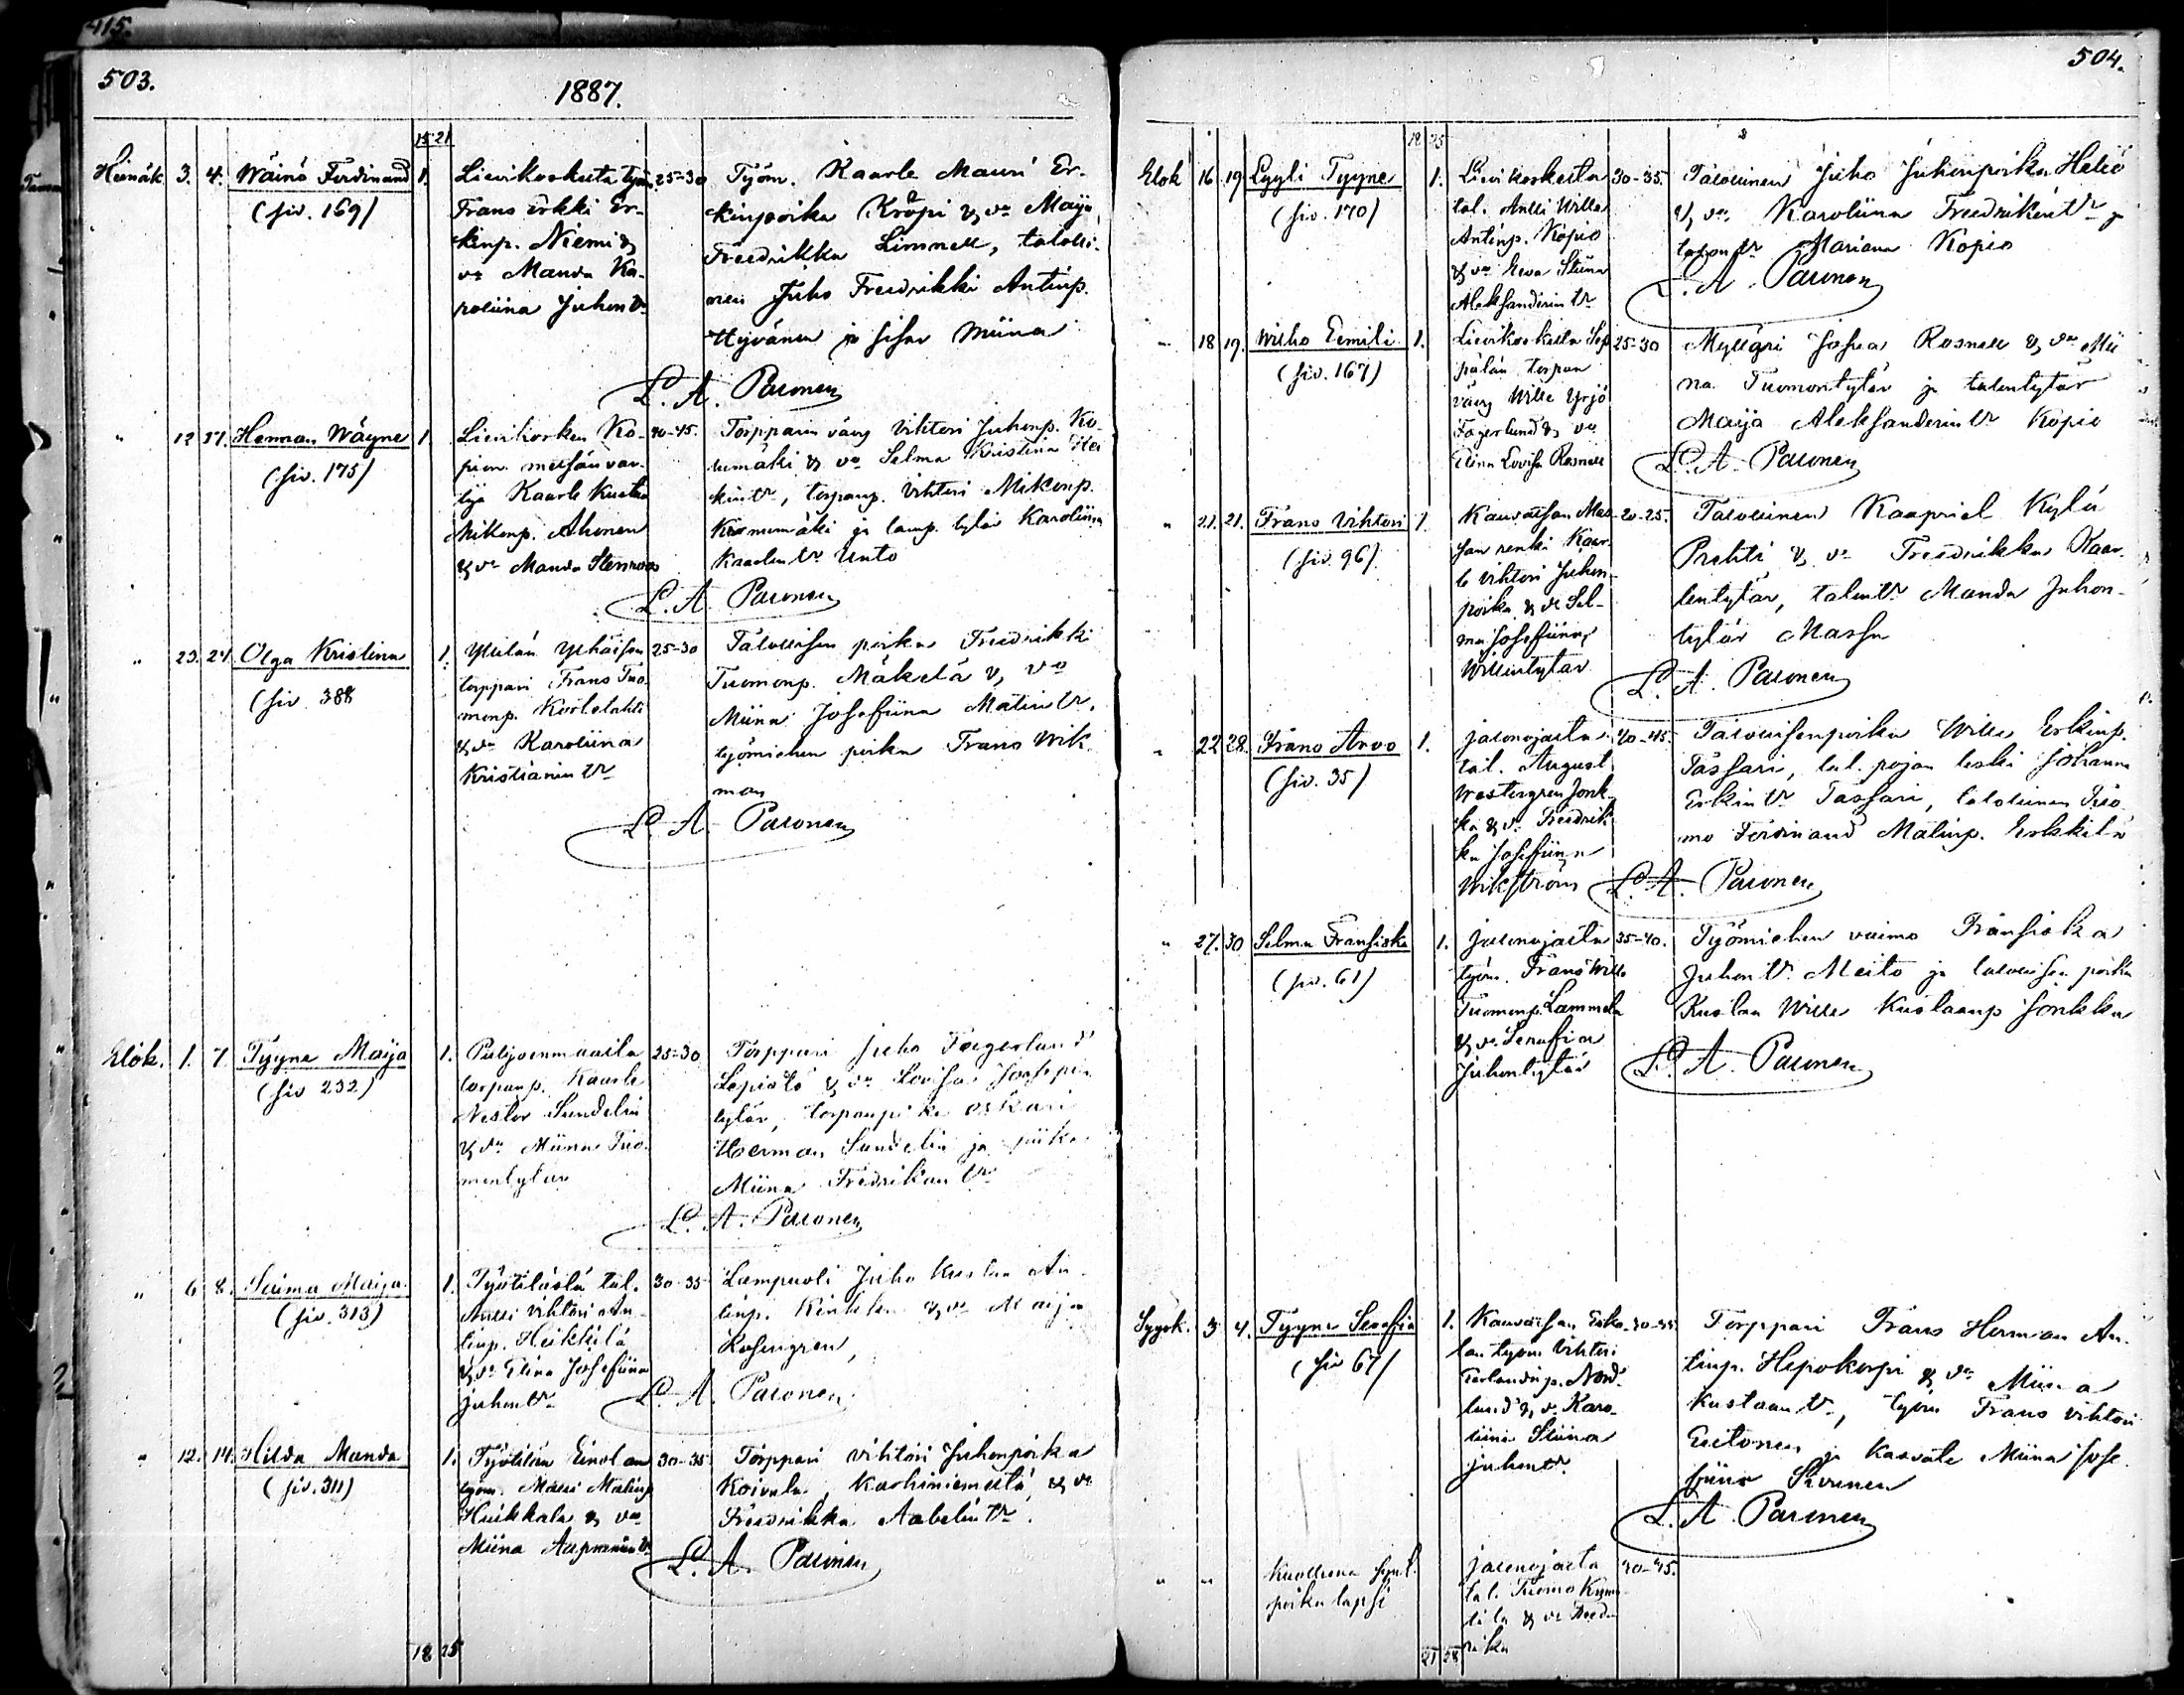 415.
503.
1887.
15 21
Heinäk 3. 4. Wäinö Ferdinand 1.
(siv. 169)
Lievikoskelta työm.
Frans Erkki Er-
kinp. Niemi &
vo Manda Ka-
roliina Juhontr
25-30
Työm. Kaarle Mauri Er-
kinpoika Kröpi & vo Maija
Freedrikka Limnell, talolli-
nen Juho Freedrikki Antinp.
Hyvänen ja sisar Miina
L. A. Paronen
" 12 17. Herman Wäyne 1
(siv. 175)
Lievikosken Ko-
pion metsänvar-
tija Kaarle Kusta
Mikonp. Ahonen
& vo Manda Stenroos
40-45.
Torpparin vävy Vihtori Juhonp. Ko-
numäki & vo Selma Kristina Hei
kintr, torpanp. Vihtori Mikonp.
Kromumäki ja lamp. tytär Karoliina
Kaarlentr Unto
L. A. Paronen
" 23. 24. Olga Kristina 1.
(siv. 388
Yllilän Ylhäisen
torppari Frans Tuo-
monp. Kortelahti
& vo Karoliina
Kristianintr
25-30
Talollisen poika Freedrikki
Tuomonp. Mäkelä & vo
Miina Josefiina Matintr,
työmiehen poika Frans Wik-
man
L. A. Paronen
Elok. 1. 7. Tyyne Maija 1.
(siv 232)
torpanp. Kaarle
Nestor Sundelin
& vo Miina Tuo-
montytär
25-30
Torppari Juho Fagerlund
Lepistö & vo Lovisa Joosepin
tytär, torpanpoika Oskari
Herman Sundelin ja piika
Miina Fredrikantr
L. A. Paronen
" 6 8. Saima Maija 1.
(siv. 313)
Työtilästä tal.
Antti Vihtori An-
tinp. Heikkilä
& vo Elina Josefiina
Juhontr
30-35
Lampuoti Juho Kustaa An-
tinp. Kinkka & vo Maija
Rosengren,
L. A. Paronen
" 12. 14. Hilda Manda 1.
(siv. 311)
Työtilän Einolan
työm. Matti Matinp
Heikkala & vo
Miina
30-35
Torppari Vihtori Juhonpoika
Koivula, Karhiniemeltä, & vo
Freedrikka Aabelintr.
L. A. Paronen
18 25
504.
18 25
Elok 16. 19 Lyyli Tyyne 1.
(siv. 170)
Lievikoskelta
tal. Antti Wille
Antinp. Kopio
& vo Eeva Stiina
Aleksanderintr
30-35.
Talollinen Juho Juhonpoika Heliö
& vo Karoliina Freedrikintr ja
talontr Mariana Kopio
L. A. Paronen
" 18 19. Wilho Eemili 1.
(siv. 167)
Lievikoskelta Sep
pälän torpan
vävy Wille Yrjö
Fagerlund & vo
Elina Lovisa Rosnell
25-30
Mylläri Josua Rosnell & vo Mii
na Tuomontytär ja talontytär
Maija Aleksanderintr Kopio
L. A. Paronen
" 21. 21. Frans Vihtori 1.
(siv. 96)
Kauvatsan Mas-
san renki Kaar-
le Vihtori Juhon-
poika & vo Sel-
ma Josefiina
Willentytär
20-25.
Talollinen Kaapriel Kylä
Prehti & vo Freedrikka Kaar-
lentytär, talontr Manda Juhon-
tytär Massa
L. A. Paronen
" 22 28. Frans Arvo 1.
(siv. 35)
Jalonojalta
tal. August
Westergren Jonk-
ka & vo Freedrik-
ka Josefiina
Wikström
40-45.
Talollisenpoika Wille Erkinp.
Tassari, tal. pojan leski Johanna
Erkintr Tassari, talollinen Tuo-
mo Ferdinand Matinp. Erkkilä
L. A. Paronen
" 27. 30 Selma Fransiska 1.
(siv. 61)
Jalonojalta
työm. Frans Wille
Tuomonp. Lammela
& vo Serafia
Juhontytär
35-40.
Työmiehen vaimo Fransiska
Juhontr. Meito ja talollisen poika
Kustaa Wille Kustaanp Jonkka
L. A. Paronen
Syysk. 3 4. Tyyne Serafia 1.
(siv 67)
Kauvatsan Erkki-
lan työm Vihtori
Eerlandinp. Nord-
lund & vo Karo-
liina Stiina
Juhontr.
30-35.
Torppari Frans Herman An-
tinp. Hepokorpi & vo Miina
Kustaantr, työm Frans Vihtori
ja kasvatti Miina Jose
fiina
L. A. Paronen
" " Kuolluna synt.
poika lapsi
Jalonojalta
tal. Tuomo
& vo Freed-
rika
40-45.
21 28